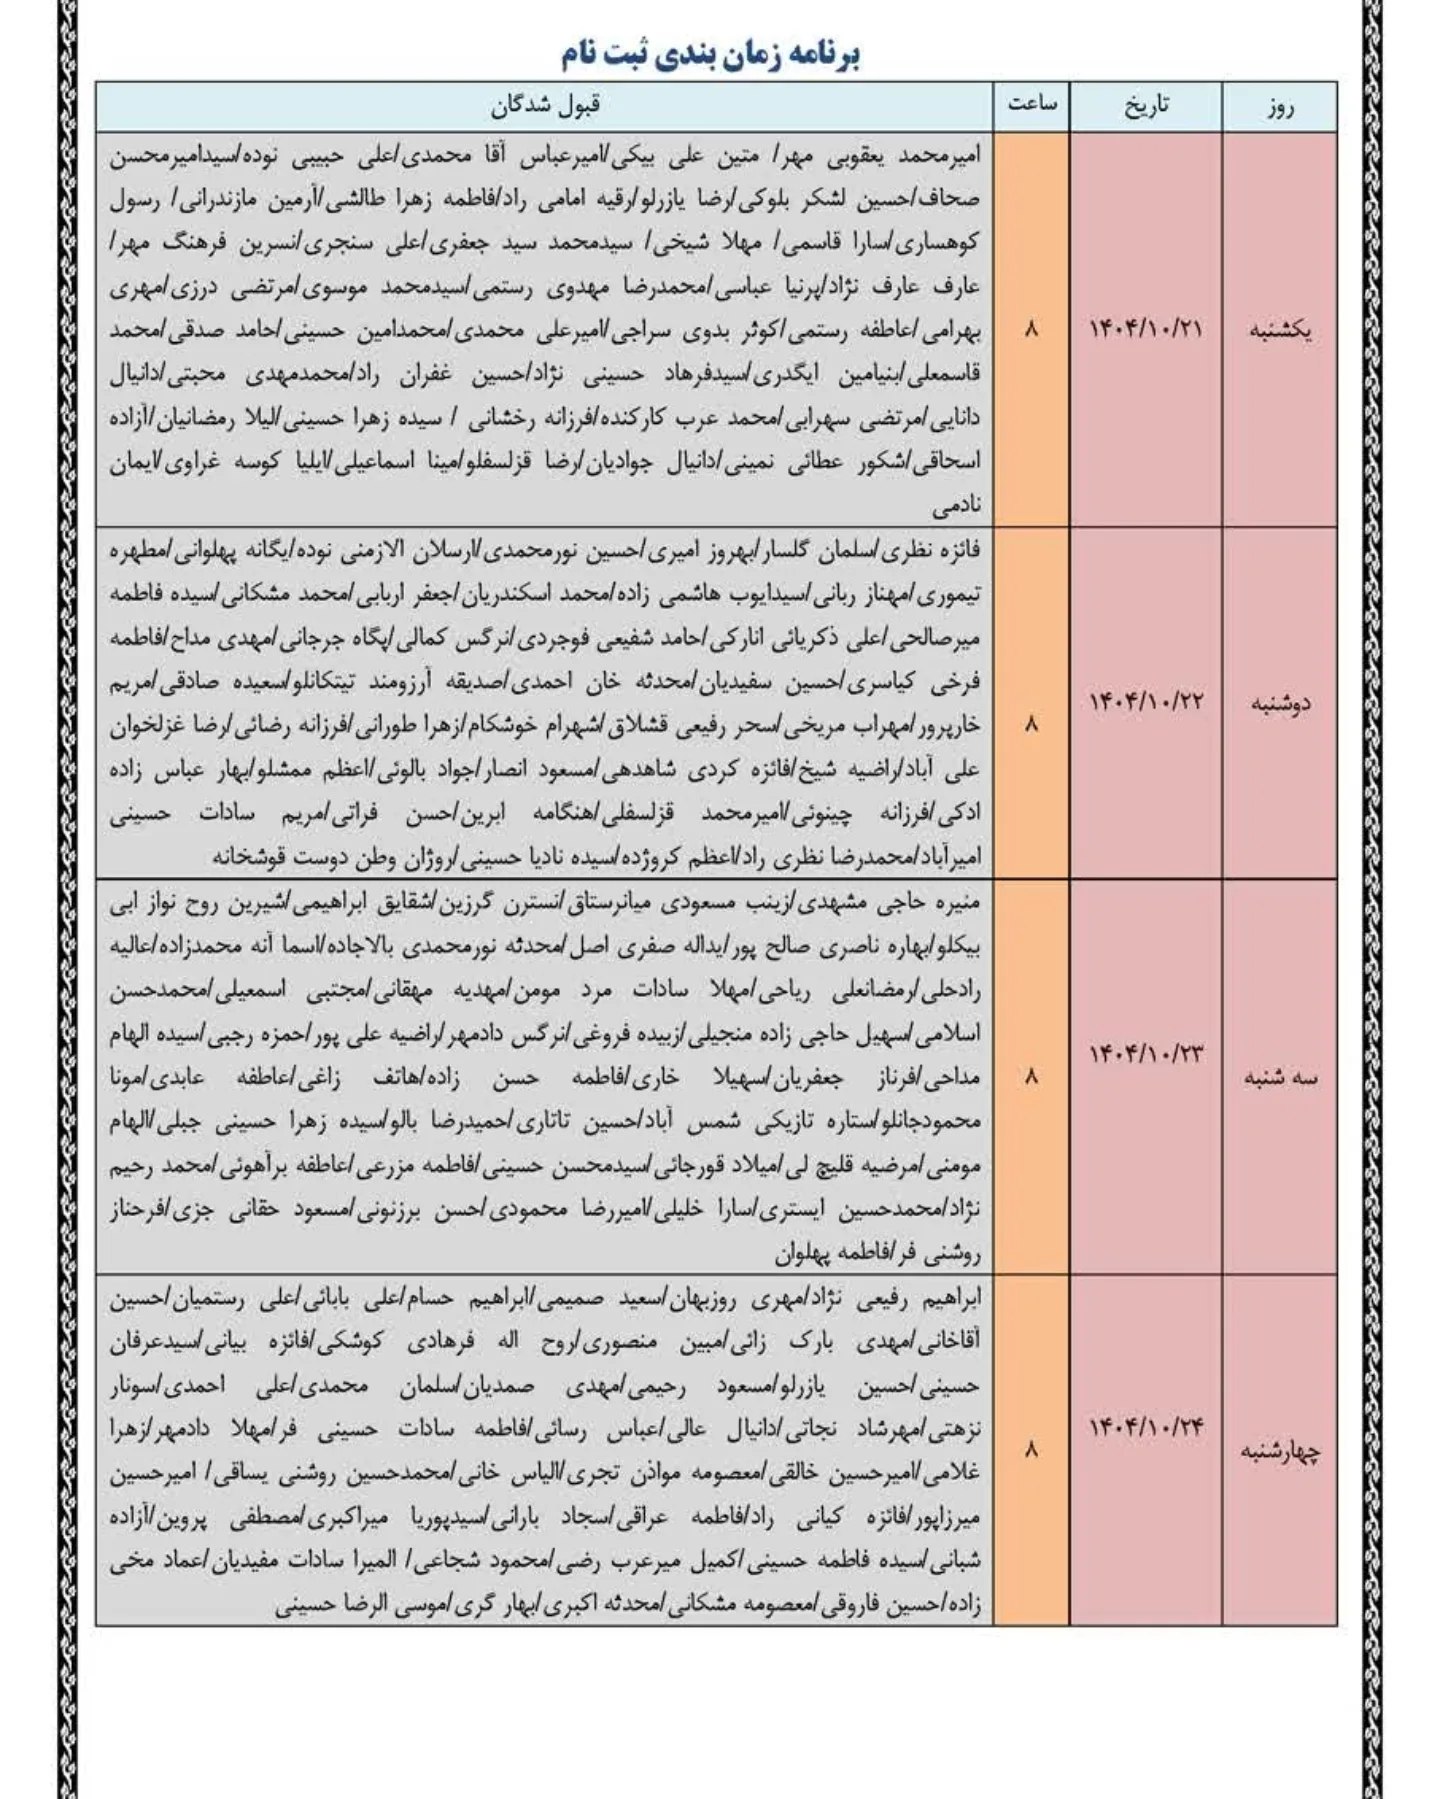 برنامه زمان بندی ثبت نام
روز تاریخ ساعت قبول شدگان
یکشنبه ۱۴۰۴/۱۰/۲۱ ۸
امیرمحمد یعقوبی مهر/ متین علی بیکی/امیرعباس آقا محمدی/علی حبیبی نوده/سیدامیرمحسن
صحاف/حسین لشکر بلوکی/رضا یازرلو/رقیه امامی راد/فاطمه زهرا طالشی/آرمین مازندرانی/ رسول
کوهساری/سارا قاسمی/ مهلا شیخی/ سیدمحمد سید جعفری/علی سنجری/نسرین فرهنگ مهر/
عارف عارف نژاد/پرنیا عباسی/محمدرضا مهدوی رستمی/سیدمحمد موسوی/مرتضی درزی/مهری
بهرامی/عاطفه رستمی/کوثر بدوی سراجی/امیرعلی محمدی/محمدامین حسینی/حامد صدقی/محمد
قاسمعلی/بنیامین ایگدری/سیدفرهاد حسینی نژاد/حسین غفران راد/محمدمهدی محبتی/دانیال
دانایی/مرتضی سهرابی/محمد عرب کارکنده/فرزانه رخشانی / سیده زهرا حسینی/لیلا رمضانیان/آزاده
اسحاقی/شکور عطائی نمینی/دانیال جوادیان/رضا قزلسفلو/مینا اسماعیلی/ایلیا کوسه غراوی/ایمان
نادمی
دوشنبه ۱۴۰۴/۱۰/۲۲ ۸
فائزه نظری/سلمان گلسار/بهروز امیری/حسین نورمحمدی/ارسلان الازمنی نوده/یگانه پهلوانی/مطهره
تیموری/مهناز ربانی/سیدایوب هاشمی زاده/محمد اسکندریان/جعفر اربابی/محمد مشکانی/سیده فاطمه
میرصالحی/علی ذکریائی انارکی/حامد شفیعی فوجردی/نرگس کمالی/پگاه جرجانی/مهدی مداح/فاطمه
فرخی کیاسری/حسین سفیدیان/محدثه خان احمدی/صدیقه آرزومند تیتکانلو/سعیده صادقی/مریم
خارپرور/مهراب مریخی/سحر رفیعی قشلاق/شهرام خوشکام/زهرا طورانی/فرزانه رضائی/رضا غزلخوان
علی آباد/راضیه شیخ/فائزه کردی شاهدهی/مسعود انصار/جواد بالوئی/اعظم ممشلو/بهار عباس زاده
ادکی/فرزانه چینوئی/امیرمحمد قزلسفلی/هنگامه ابرین/حسن فراتی/مریم سادات حسینی
امیرآباد/محمدرضا نظری راد/اعظم کروژده/سیده نادیا حسینی/روژان وطن دوست قوشخانه
سه شنبه ۱۴۰۴/۱۰/۲۳ ۸
منیره حاجی مشهدی/زینب مسعودی میانرستاق/نسترن گرزین/شقایق ابراهیمی/شیرین روح نواز ابی
بیکلو/بهاره ناصری صالح پور/یداله صفری اصل/محدثه نورمحمدی بالاجاده/اسما آنه محمدزاده/عالیه
رادحلی/رمضانعلی ریاحی/مهلا سادات مرد مومن/مهدیه مهقانی/مجتبی اسمعیلی/محمدحسن
اسلامی/سهیل حاجی زاده منجیلی/زبیده فروغی/نرگس دادمهر/راضیه علی پور/حمزه رجبی/سیده الهام
مداحی/فرناز جعفریان/سهیلا خاری/فاطمه حسن زاده/هاتف زاغی/عاطفه عابدی/مونا
محمودجانلو/ستاره تازیکی شمس آباد/حسین تاتاری/حمیدرضا بالو/سیده زهرا حسینی جبلی/الهام
مومنی/مرضیه قلیچ لی/میلاد قورجائی/سیدمحسن حسینی/فاطمه مزرعی/عاطفه برآهوئی/محمد رحیم
نژاد/محمدحسین ایستری/سارا خلیلی/امیررضا محمودی/حسن برزنونی/مسعود حقانی جزی/فرحناز
روشنی فر/فاطمه پهلوان
چهارشنبه ۱۴۰۴/۱۰/۲۴ ۸
ابراهیم رفیعی نژاد/مهری روزبهان/سعید صمیمی/ابراهیم حسام/علی بابائی/علی رستمیان/حسین
آقاخانی/مهدی بارک زائی/مبین منصوری/روح اله فرهادی کوشکی/فائزه بیانی/سیدعرفان
حسینی/حسین یازرلو/مسعود رحیمی/مهدی صمدیان/سلمان محمدی/علی احمدی/سونار
نزهتی/مهرشاد نجاتی/دانیال عالی/عباس رسائی/فاطمه سادات حسینی فر/مهلا دادمهر/زهرا
غلامی/امیرحسین خالقی/معصومه مواذن تجری/الیاس خانی/محمدحسین روشنی یساقی/ امیرحسین
میرزاپور/فائزه کیانی راد/فاطمه عراقی/سجاد بارانی/سیدپوریا میراکبری/مصطفی پروین/آزاده
شبانی/سیده فاطمه حسینی/کمیل میرعرب رضی/محمود شجاعی/ المیرا سادات مفیدیان/عماد مخی
زاده/حسین فاروقی/معصومه مشکانی/محدثه اکبری/بهار گری/موسی الرضا حسینی